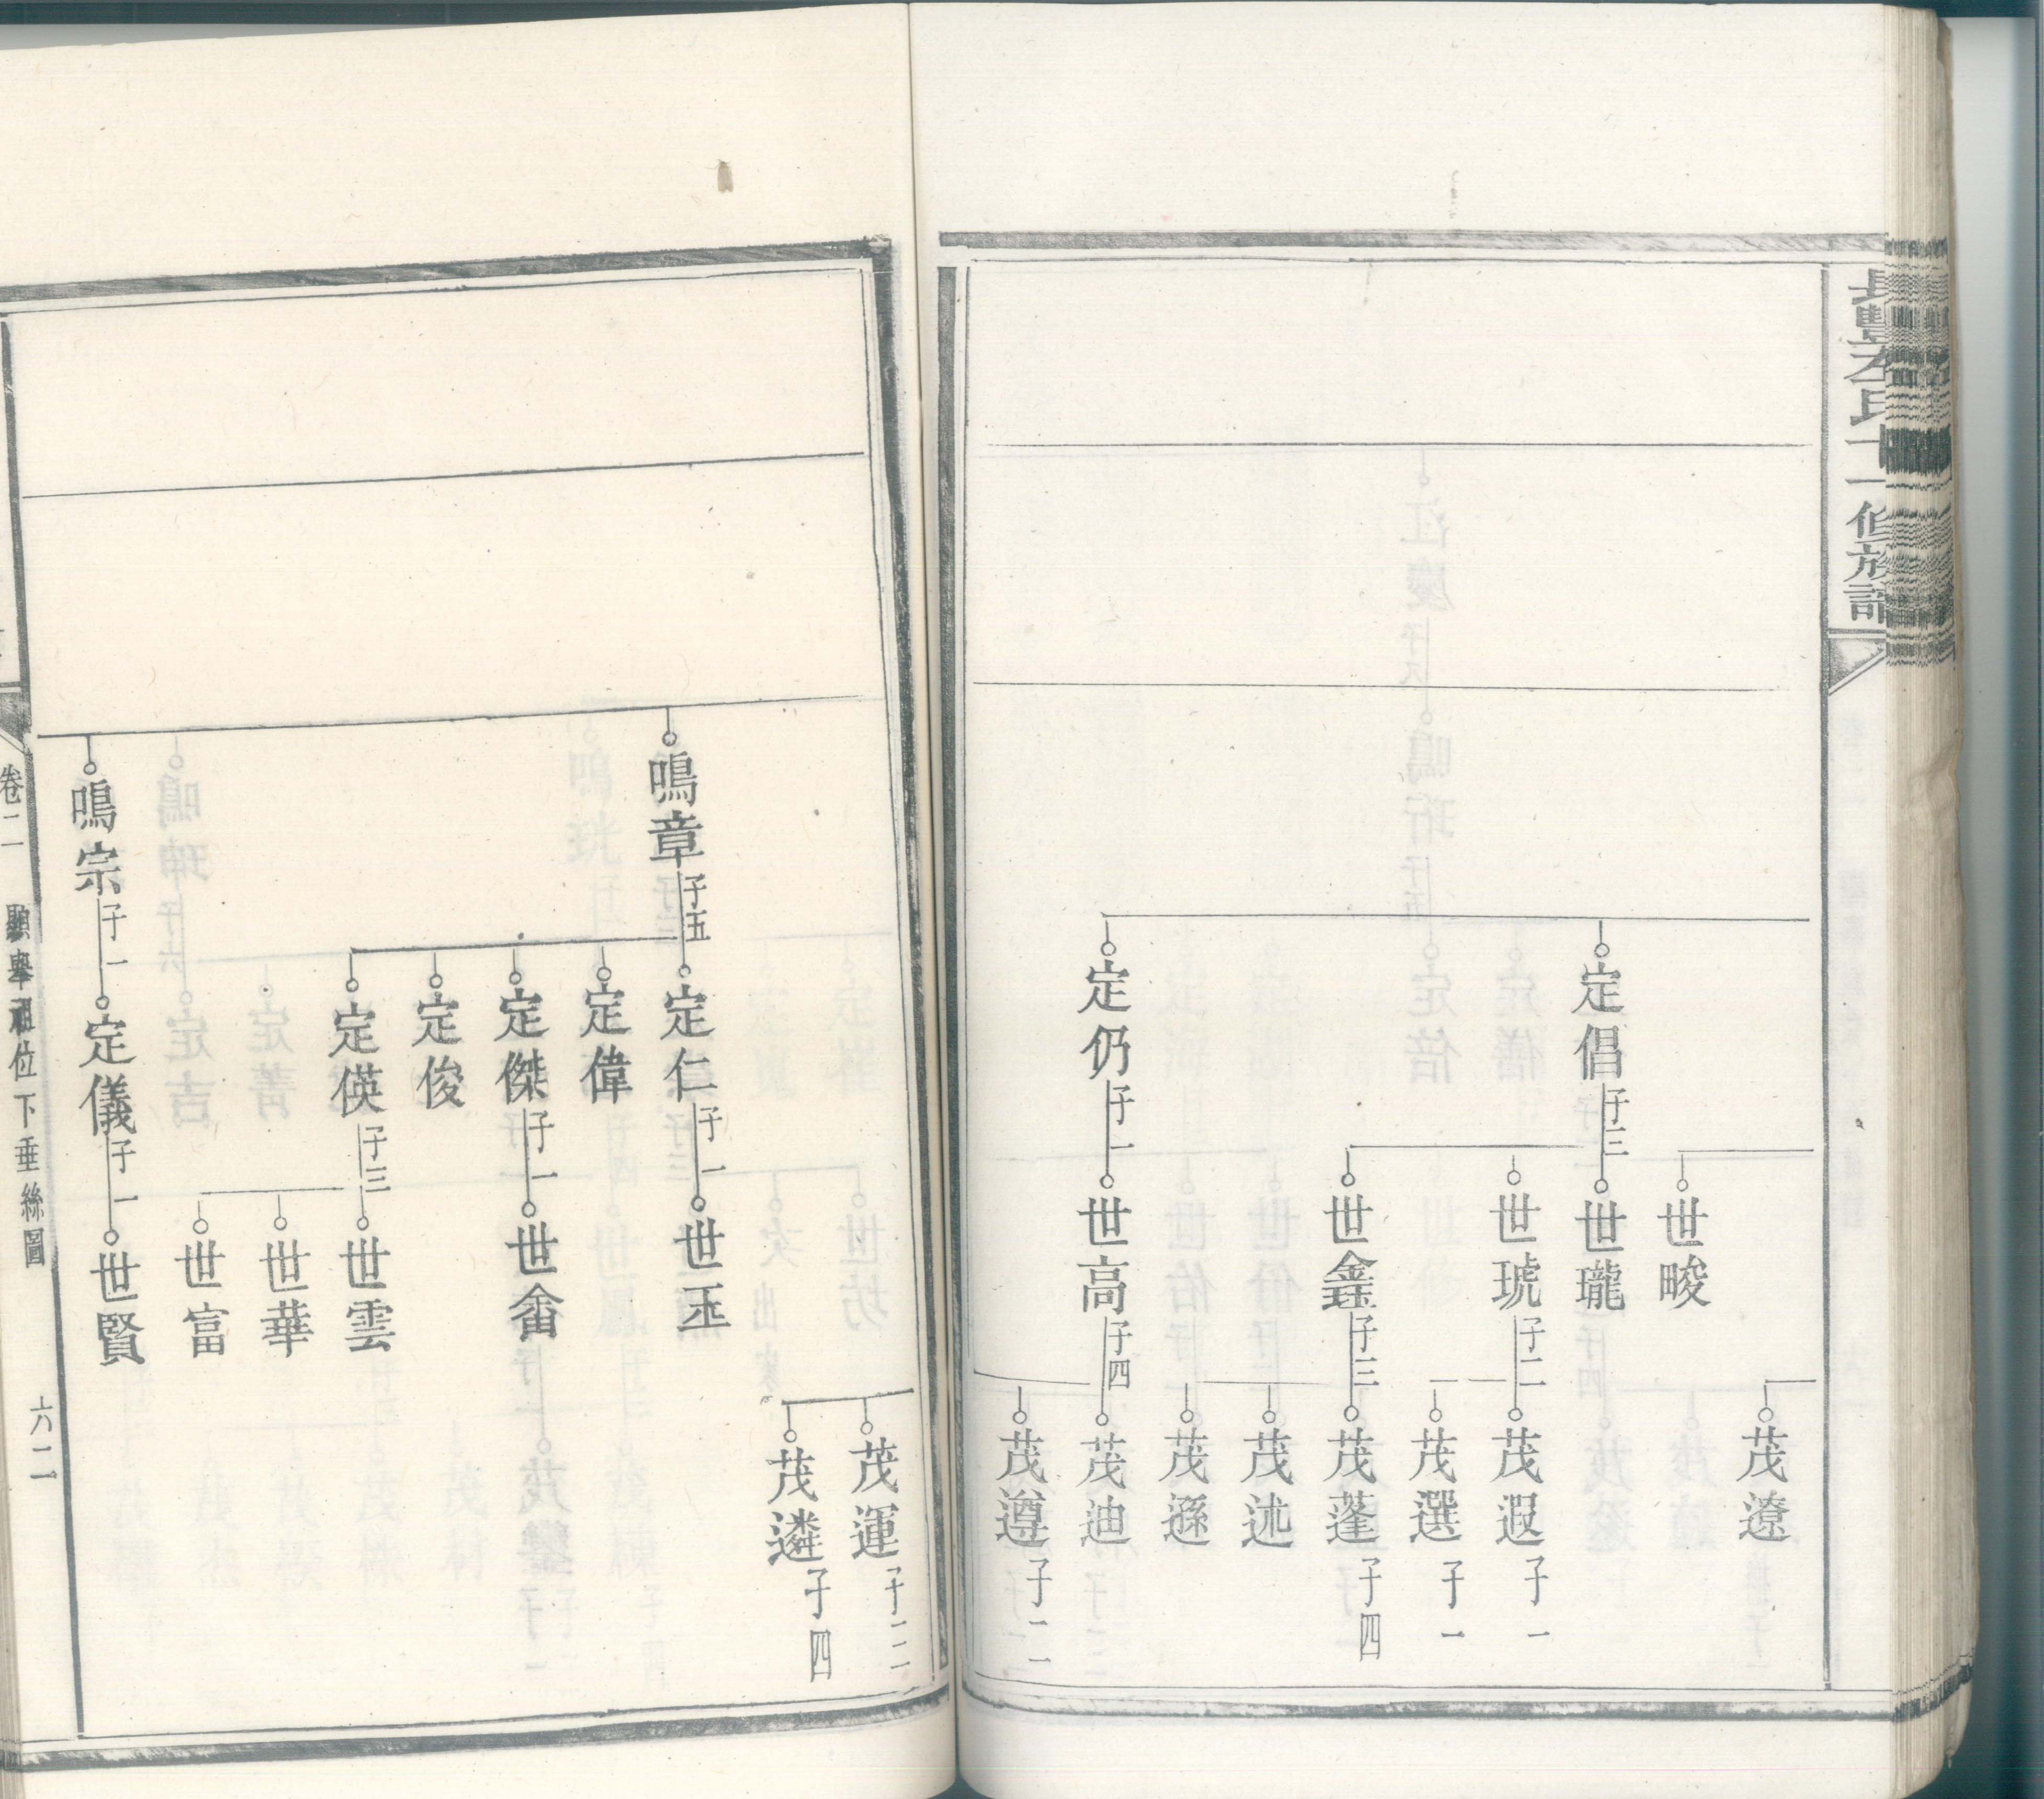 長豐李氏十一修族譜
茂遼
世畯
定倡 子三
世瓏
世琥 子二
茂遐 子一
茂選 子一
世鑫 子三
茂蓬 子四
茂述
茂遜
定仍 子一
世高 子四
茂迪
茂遵 子二
茂運 子三
茂遴 子四
鳴章 子五
定仁 子一
世玉
定偉
定傑 子一
世畬
定俊
定偀 子三
世雲
世華
世富
鳴宗 子一
定儀 子一
世賢
卷二 顯舉祖位下垂絲圖 六二